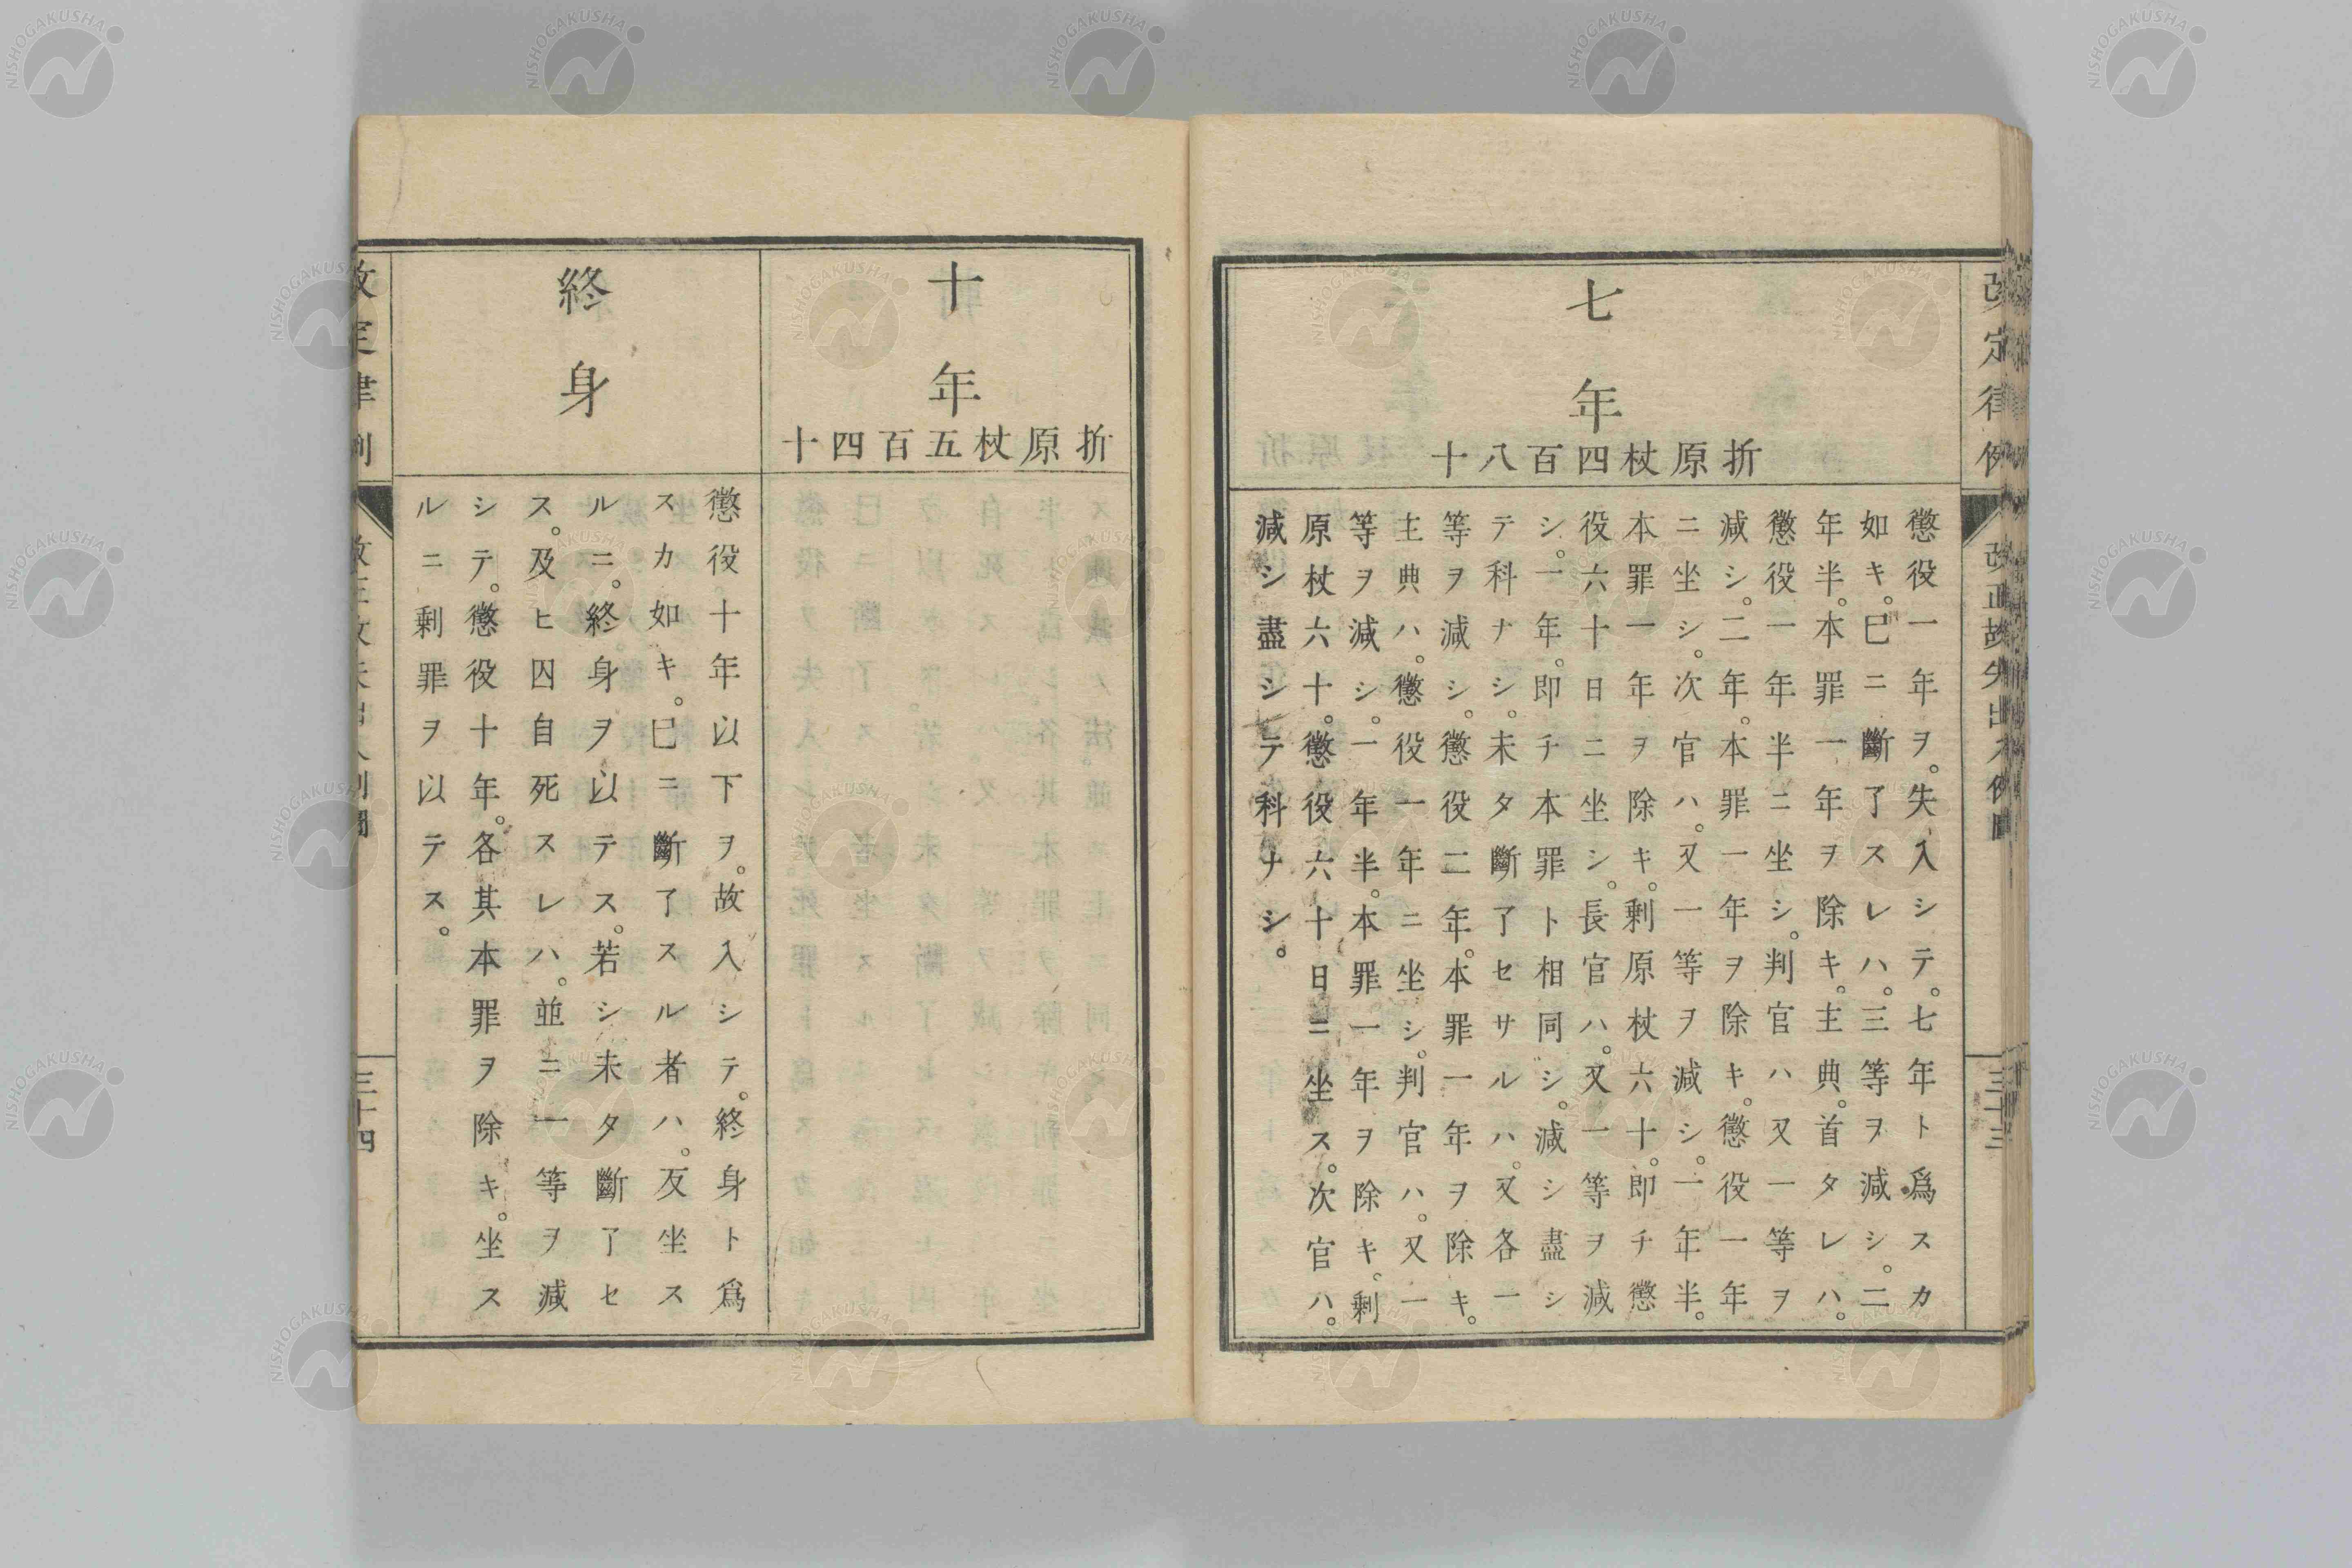 改定律例
改正故失出入例圖
三十三
七年
折原杖四百八十
懲役一年ヲ。失入シテ。七年ト爲スカ
如キ。已ニ斷了スレハ。三等ヲ減シ。二
年半。本罪一年ヲ除キ。主典。首タレハ。
懲役一年半ニ坐シ。判官ハ又一等ヲ
減シ。二年。本罪一年ヲ除キ。懲役一年
ニ坐シ。次官ハ。又一等ヲ減シ。一年半。
本罪一年ヲ除キ。剩原杖六十。即チ懲
役六十日ニ坐シ。長官ハ。又一等ヲ減
シ。一年。即チ本罪ト相同シ。減シ盡シ
テ科ナシ。未タ斷了セサルハ。又各一
等ヲ減シ。懲役二年。本罪一年ヲ除キ。
主典ハ。懲役一年ニ坐シ。判官ハ。又一
等ヲ減シ。一年半。本罪一年ヲ除キ。剩
原杖六十。懲役六十日ニ坐ス。次官ハ。
減シ盡シテ科ナシ。
十年
折原杖五百四十
終身
懲役十年以下ヲ。故入シテ。終身ト爲
スカ如キ。已ニ斷了スル者ハ。反坐ス
ルニ。終身ヲ以テス。若シ未タ斷了セ
ス。及ヒ囚自死スレハ。並ニ一等ヲ減
シテ。懲役十年。各其本罪ヲ除キ。坐ス
ルニ剩罪ヲ以テス。
改定律例
三十四
NISHOGAKUSHA